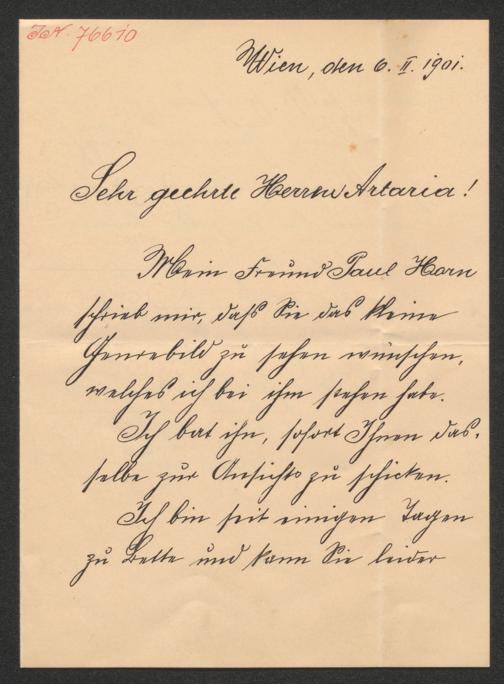 IN 76610
Wien, den 6. II. 1901.
Sehr geehrte Herren Artaria!
Mein Freund Paul Horn
schrieb mir, daß Sie das kleine
Genrebild zu sehen wünschen,
welches ich bei ihm stehen habe.
Ich bat ihn, sofort Ihnen das-
selbe zur Ansicht zu schicken.
Ich bin seit einigen Tagen
zu Bette und kann Sie leider